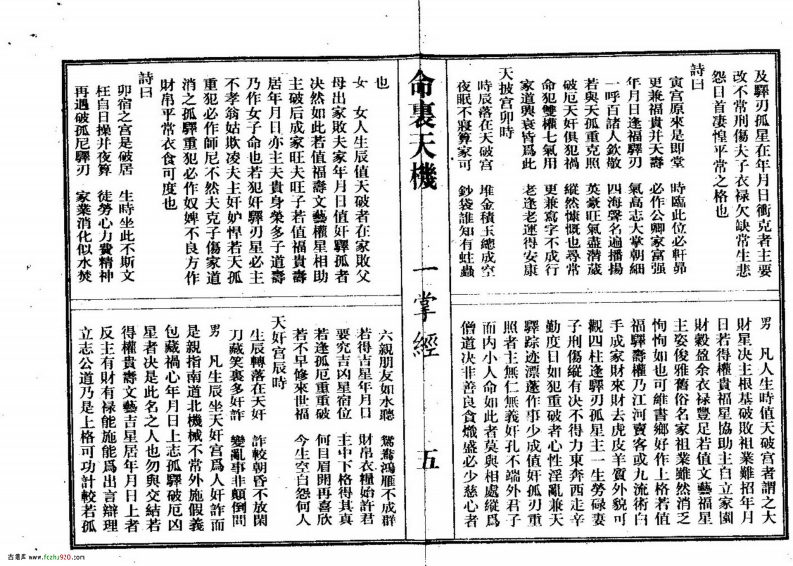 及驛刃孤星在年月日衝克者主要
改不常刑傷夫子衣祿欠缺常生悲
怨日首淒惶平常之格也
詩曰
寅宮原來是即堂　時臨此位必軒昂
更兼福貴并天壽　必作公卿家富强
年月日逢福驛刃　氣高志大掌朝綱
一呼百諾人欽敬　四海聲名遍播揚
若與天孤重克照　英豪旺氣盡潛蔵
破厄天奸俱犯禍　縱然慷慨也尋常
命犯雙權七氣用　更兼寫字不成行
家道興衰皆爲此　老逢老運得安康
天披宮卯時
時辰落在天破宮　堆金積玉總成空
夜眠不寢算家可　鈔袋誰知有蛀蟲
男　凡人生時值天破宮者謂之大
財星决主根基破敗祖業難招年月
日若得權貴福星協助主自立家園
財穀盈余衣祿豐足若值文藝福星
主姿俊雅舊俗名家祖業雖然消乏
恂恂如也可維書鄉好作上格若值
福驛壽權乃江河賣客或九流術臼
手成家財來財去虎皮羊質外貌可
觀四柱逢驛刃孤星主一生勞碌妻
子刑傷縱有决不得力東奔西走辛
勤度日如犯重破者心性淫亂兼天
驛踪迹漂蓬作事少成值奸孤刃重
照者主無仁無義奸孔不端外君子
而内小人命如此者莫與相處縱爲
僧道决非善良食熾盛必少慈心者
命裏天機　一掌經　五
也
女　女人生辰值天破者在家敗父
母出家敗夫家年月日值奸驛孤者
决然如此若值福壽文藝權星相助
主破后成家旺夫旺子若值福貴壽
居年月日亦主夫貴身榮多子道壽
乃作女子命也若犯奸驛刃星必主
不孝翁姑欺凌夫主奸妒悍若天孤
重犯必作師尼不然夫克子傷家道
消之孤驛重犯必作奴婢不良方作
財帛平常衣食可度也
詩曰
卯宿之宮是破居　生時坐此不斯文
枉自日操并夜算　徒勞心力費精神
再遇破孤尼驛刃　家業消化似水焚
六親朋友如水聽　鴛鴦鴻雁不成群
若得吉星年月日　財帛衣糧始許君
要究吉凶星宿位　主中下格得其真
若逢孤厄重重破　何目眉開再喜欣
若不早修來世福　今生空白怨何人
天奸宮辰時
生辰轉落在天奸　詐較朝昏不放閑
刀藏笑裏多奸詐　變亂事非顛倒間
男　凡生辰坐天奸宮爲人奸詐而
是親指南道北機械不常外施假義
包藏禍心年月日上志孤驛破厄凶
星者决是此名之人也勿與交結若
得權貴壽文藝吉星居年月日上者
反主有財有禄能施能爲出言辯理
立志公道乃是上格可功計較若孤
古書庫 www.fozhu920.com